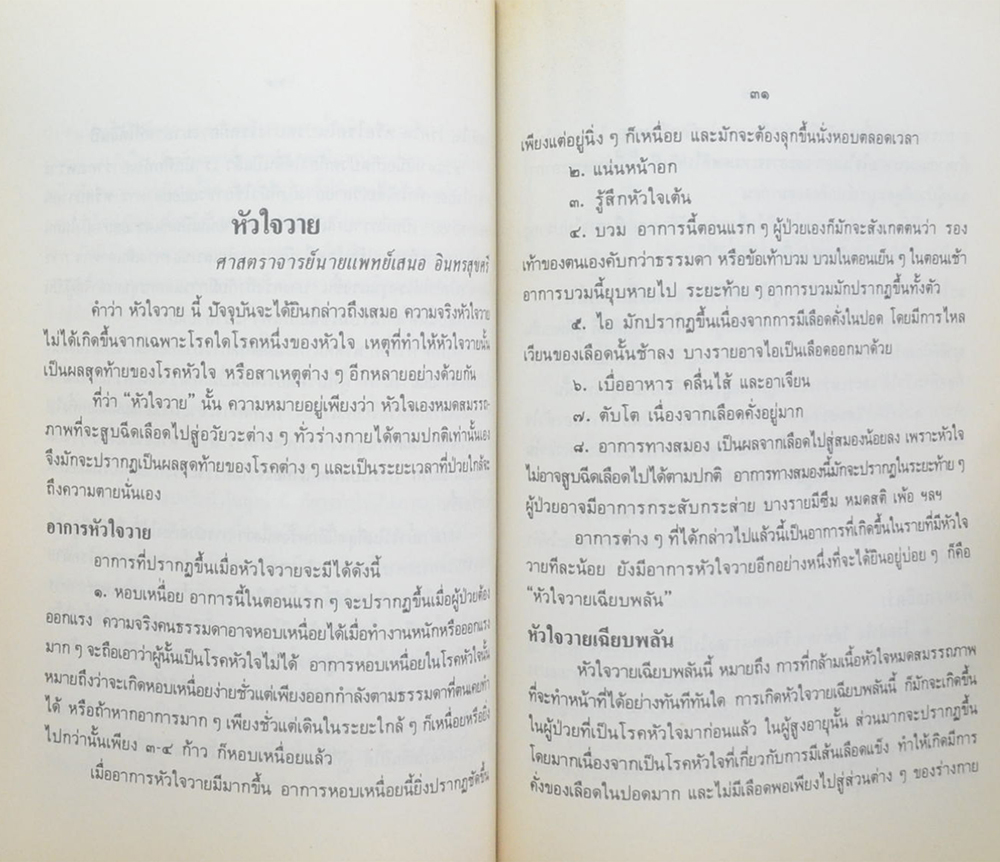 หัวใจวาย
ศาสตราจารย์นายแพทย์เสนอ อินทรสุขศรี
คำว่า หัวใจวาย นี้ ปัจจุบันจะได้ยินกล่าวถึงเสมอ ความจริงหัวใจวาย
ไม่ได้เกิดขึ้นจากเฉพาะโรคใดโรคหนึ่งของหัวใจ เหตุที่ทำให้หัวใจวายนั้น
เป็นผลสุดท้ายของโรคหัวใจ หรือสาเหตุต่าง ๆ อีกหลายอย่างด้วยกัน
ที่ว่า “หัวใจวาย” นั้น ความหมายอยู่เพียงว่า หัวใจเองหมดสมรรถ-
ภาพที่จะสูบฉีดเลือดไปสู่อวัยวะต่าง ๆ ทั่วร่างกายได้ตามปกติเท่านั้นเอง
จึงมักจะปรากฏเป็นผลสุดท้ายของโรคต่าง ๆ และเป็นระยะเวลาที่ป่วยใกล้จะ
ถึงความตายนั่นเอง
อาการหัวใจวาย
อาการที่ปรากฏขึ้นเมื่อหัวใจวายจะมีได้ดังนี้
๑. หอบเหนื่อย อาการนี้ในตอนแรก ๆ จะปรากฏขึ้นเมื่อผู้ป่วยต้อง
ออกแรง ความจริงคนธรรมดาอาจหอบเหนื่อยได้เมื่อทำงานหนักหรือออกแรง
มาก ๆ จะถือเอาว่าผู้นั้นเป็นโรคหัวใจไม่ได้ อาการหอบเหนื่อยในโรคหัวใจนั้น
หมายถึงว่าจะเกิดหอบเหนื่อยง่ายชั่วแต่เพียงออกกำลังตามธรรมดาที่ตนเคยทำ
ได้ หรือถ้าหากอาการมาก ๆ เพียงชั่วแต่เดินในระยะใกล้ ๆ ก็เหนื่อยหรือยิ่ง
ไปกว่านั้นเพียง ๓-๔ ก้าว ก็หอบเหนื่อยแล้ว
เมื่ออาการหัวใจวายมีมากขึ้น อาการหอบเหนื่อยนี้ยิ่งปรากฏชัดขึ้น
๓๑
เพียงแต่อยู่นิ่ง ๆ ก็เหนื่อย และมักจะต้องลุกขึ้นนั่งหอบตลอดเวลา
๒. แน่นหน้าอก
๓. รู้สึกหัวใจเต้น
๔. บวม อาการนี้ตอนแรก ๆ ผู้ป่วยเองก็มักจะสังเกตตนว่า รอง
เท้าของตนเองคับกว่าธรรมดา หรือข้อเท้าบวม บวมในตอนเย็น ๆ ในตอนเช้า
อาการบวมนี้ยุบหายไป ระยะท้าย ๆ อาการบวมมักปรากฏขึ้นทั้งตัว
๕. ไอ มักปรากฏขึ้นเนื่องจากการมีเลือดคั่งในปอด โดยมีการไหล
เวียนของเลือดนั้นช้าลง บางรายอาจไอเป็นเลือดออกมาด้วย
๖. เบื่ออาหาร คลื่นไส้ และอาเจียน
๗. ตับโต เนื่องจากเลือดคั่งอยู่มาก
๘. อาการทางสมอง เป็นผลจากเลือดไปสู่สมองน้อยลง เพราะหัวใจ
ไม่อาจสูบฉีดเลือดไปได้ตามปกติ อาการทางสมองนี้มักจะปรากฏในระยะท้าย ๆ
ผู้ป่วยอาจมีอาการกระสับกระส่าย บางรายมีซึม หมดสติ เพ้อ ฯลฯ
อาการต่าง ๆ ที่ได้กล่าวไปแล้วนี้เป็นอาการที่เกิดขึ้นในรายที่มีหัวใจ
วายทีละน้อย ยังมีอาการหัวใจวายอีกอย่างหนึ่งที่จะได้ยินอยู่บ่อย ๆ ก็คือ
“หัวใจวายเฉียบพลัน”
หัวใจวายเฉียบพลัน
หัวใจวายเฉียบพลันนี้ หมายถึง การที่กล้ามเนื้อหัวใจหมดสมรรถภาพ
ที่จะทำหน้าที่ได้อย่างทันทีทันใด การเกิดหัวใจวายเฉียบพลันนี้ ก็มักจะเกิดขึ้น
ในผู้ป่วยที่เป็นโรคหัวใจมาก่อนแล้ว ในผู้สูงอายุนั้น ส่วนมากจะปรากฏขึ้น
โดยมากเนื่องจากเป็นโรคหัวใจที่เกี่ยวกับการมีเส้นเลือดแข็ง ทำให้เกิดมีการ
คั่งของเลือดในปอดมาก และไม่มีเลือดพอเพียงไปสู่ส่วนต่าง ๆ ของร่างกาย